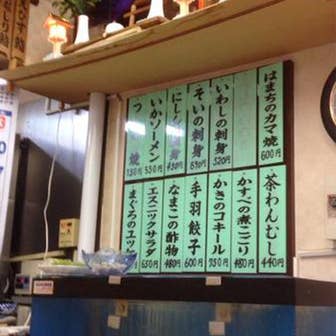 はまちのカマ焼
600円
いわしの刺身
520円
そいの刺身
にしんの刺身
いかソーメン
530円
つ
焼
茶わんむし
440円
かすべの煮こごり
480円
かきのコキール
750円
手羽餃子
600円
なまこの酢物
480円
エスニックサラダ
650円
まぐろのユッケ